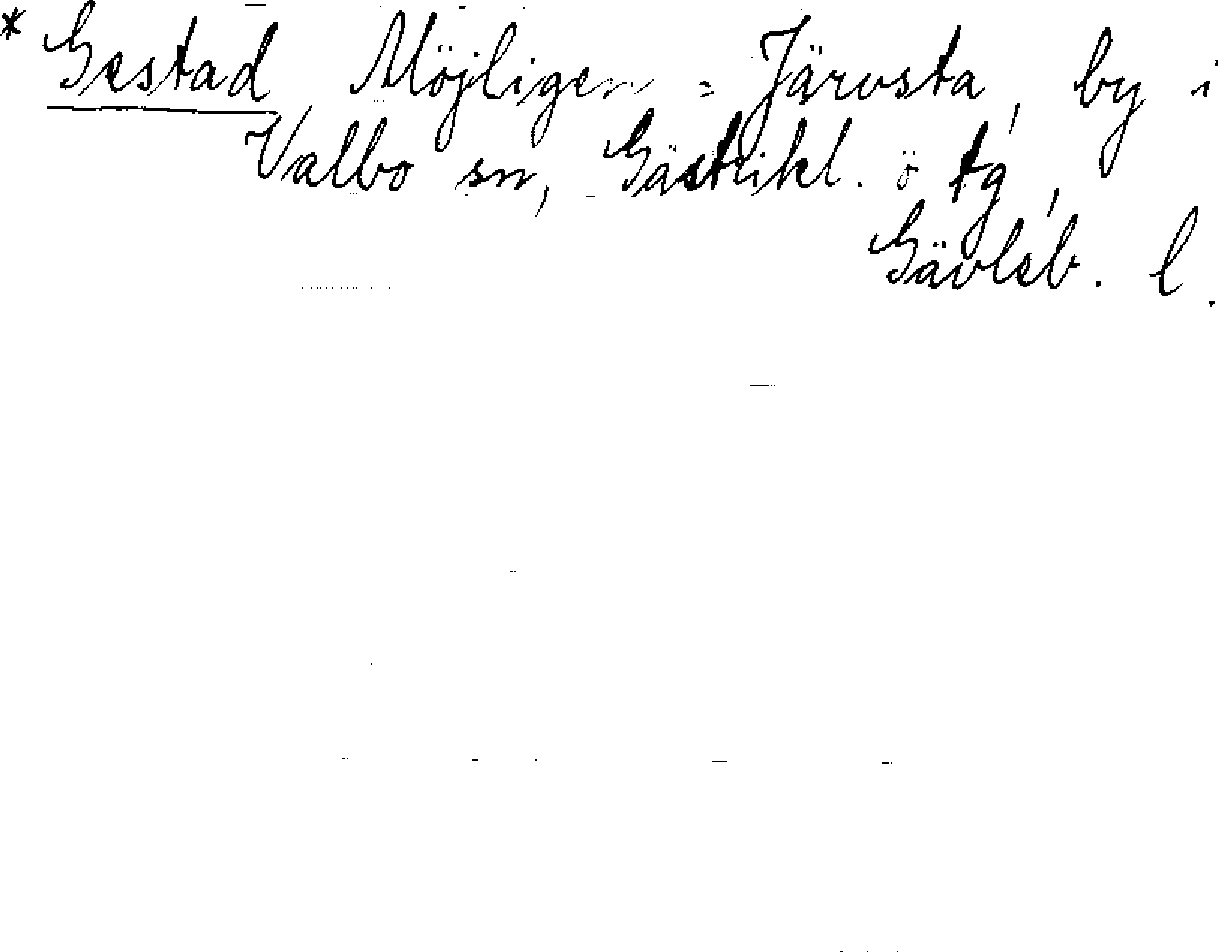 * Gestad, Möjligen = Järvsta, by i
Valbo sn, Gästrikl. ö tg,
Gävleb. l.